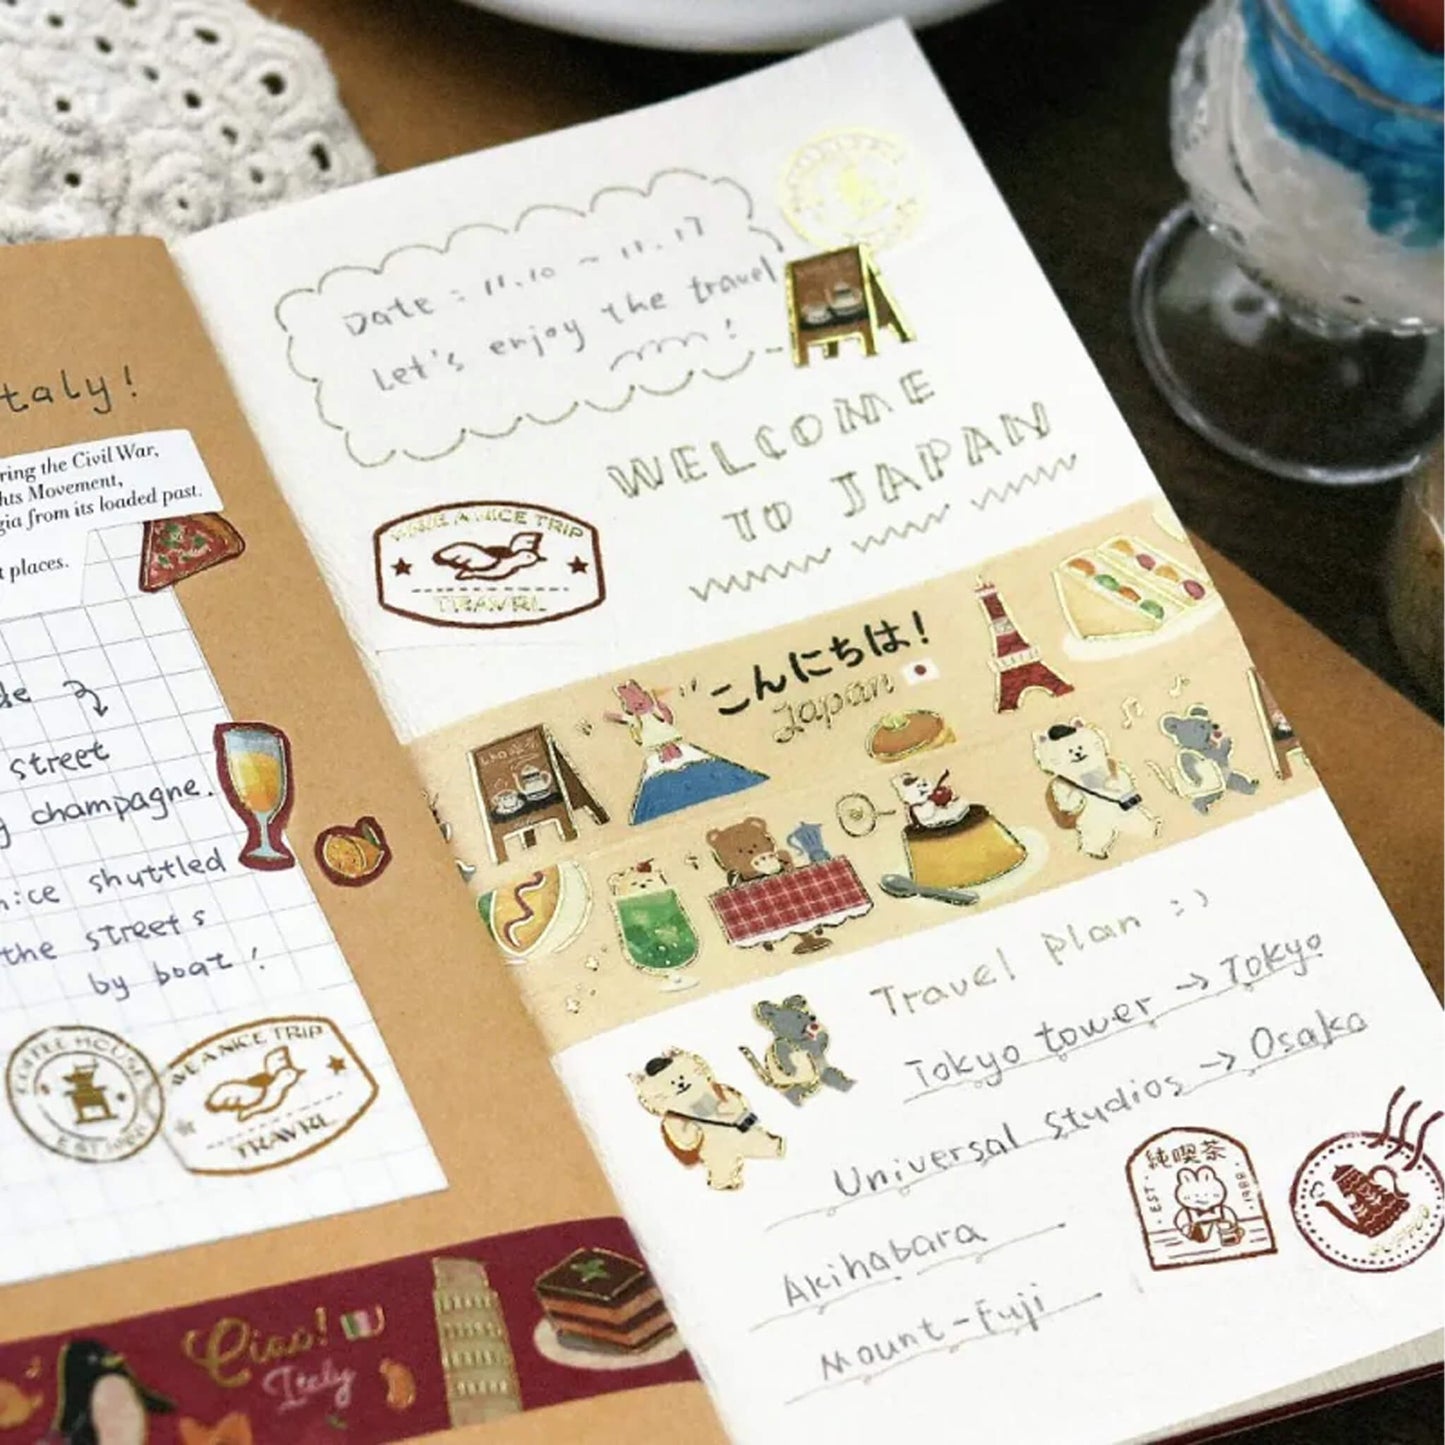 taly!
ring the Civil War,
hts Movement,
gia from its loaded past.
t places.
de
street
champagne.
ice shuttled
the streets
by boat!
COFFEE HOUSE
HAVE A NICE TRIP
TRAVRL
Ciao!
Italy
Date : 11.10 ~ 11.17
Let's enjoy the travel
!
WELCOME
TO JAPAN
HAVE A NICE TRIP
TRAVRL
こんにちは!
Japan
Travel plan :)
Tokyo tower → Tokyo
Universal Studios → Osaka
Akihabara
Mount-Fuji
純喫茶
EST 1988